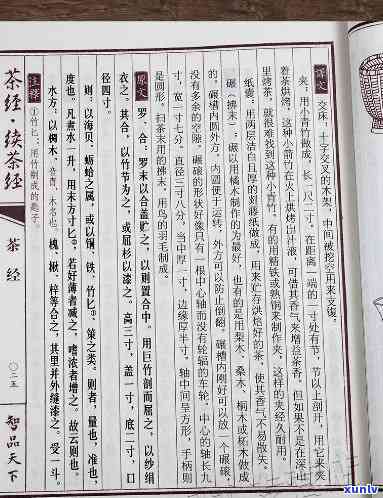 译文 交床：十字交叉的木架，中间被挖空用来支復。
夹：用小青竹做成，长一尺二寸，在距离一端的一寸处有节，节以上剖开，用它来夹
着茶烘烤。这种小箭竹在火上烘烤出汁液，可借其香气来增益茶香，但如果不是在深山
里烤茶，就很难找到这种小青竹。有的用精铁或熟铜来制作夹，这样的夹经久耐用。
纸囊：用两层洁白且厚的剡藤纸做成，用来贮存烘焙好的茶，使其香气不易散失。
碾（拂末）：碾以用橘木制作的为最好，也有的是用梨木、桑木、桐木或柘木做成
的。碾槽内圆外方，内圆便于运转，外方可以防止倒翻。碾槽内刚好可以放一个碾磙，
没有多余的空隙。碾磙的形状好像只有一根中心轴而没有轮辐的车轮，中心的轴长九
寸，宽一寸七分，直径三寸八分，当中厚一寸，边缘厚半寸，轴中间是方形，手柄则
是圆形。扫茶末用的拂末，用鸟的羽毛制成。
原文 罗、合：罗末以合盖贮之，以则置合中。用巨竹剖而屈之，以纱绢
衣之。其合，以竹节为之，或屈杉以漆之。高三寸，盖一寸，底二寸，口
径四寸。
则：以海贝、蛎蛤之属，或以铜、铁、竹匕①、策之类。则者，量也，准也，
度也。凡煮水一升，用末方寸匕②。若好薄者减之，嗜浓者增之。故云则也。
水方：以椆木、音胄，木名也。槐、楸、梓等合之，其里并外缝漆之。受一斗。
注释 ①竹匕：用竹削成的匙子。
茶经·续茶经
茶经
〇二五
智品天下